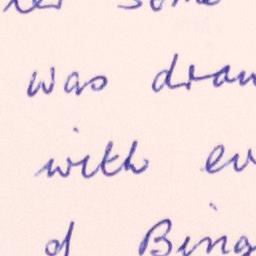 some
was draw
with ev
of Bing